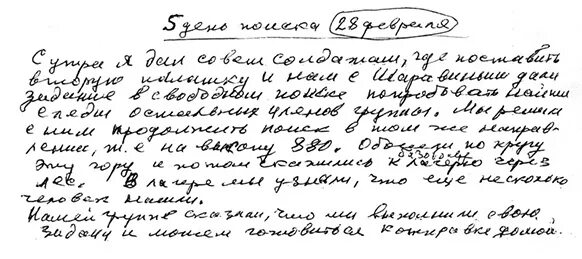 5 день поиска 28 февраля
С утра я дал совет солдатам, где поставить
вторую палатку и нам с Шаравиным дали
задание в свободном поиске попробовать найти
следы остальных членов группы. Мы решили
с ним продолжить поиск в том же направ-
лении, т.е на высоту 880. Обошли по кругу
эту гору и потом скатились к базовому лагерю через
лес. В лагере мы узнали, что еще несколько
человек нашли.
Нашей группе сказали, что мы выполнили свою
задачу и можем готовиться к отправке домой.